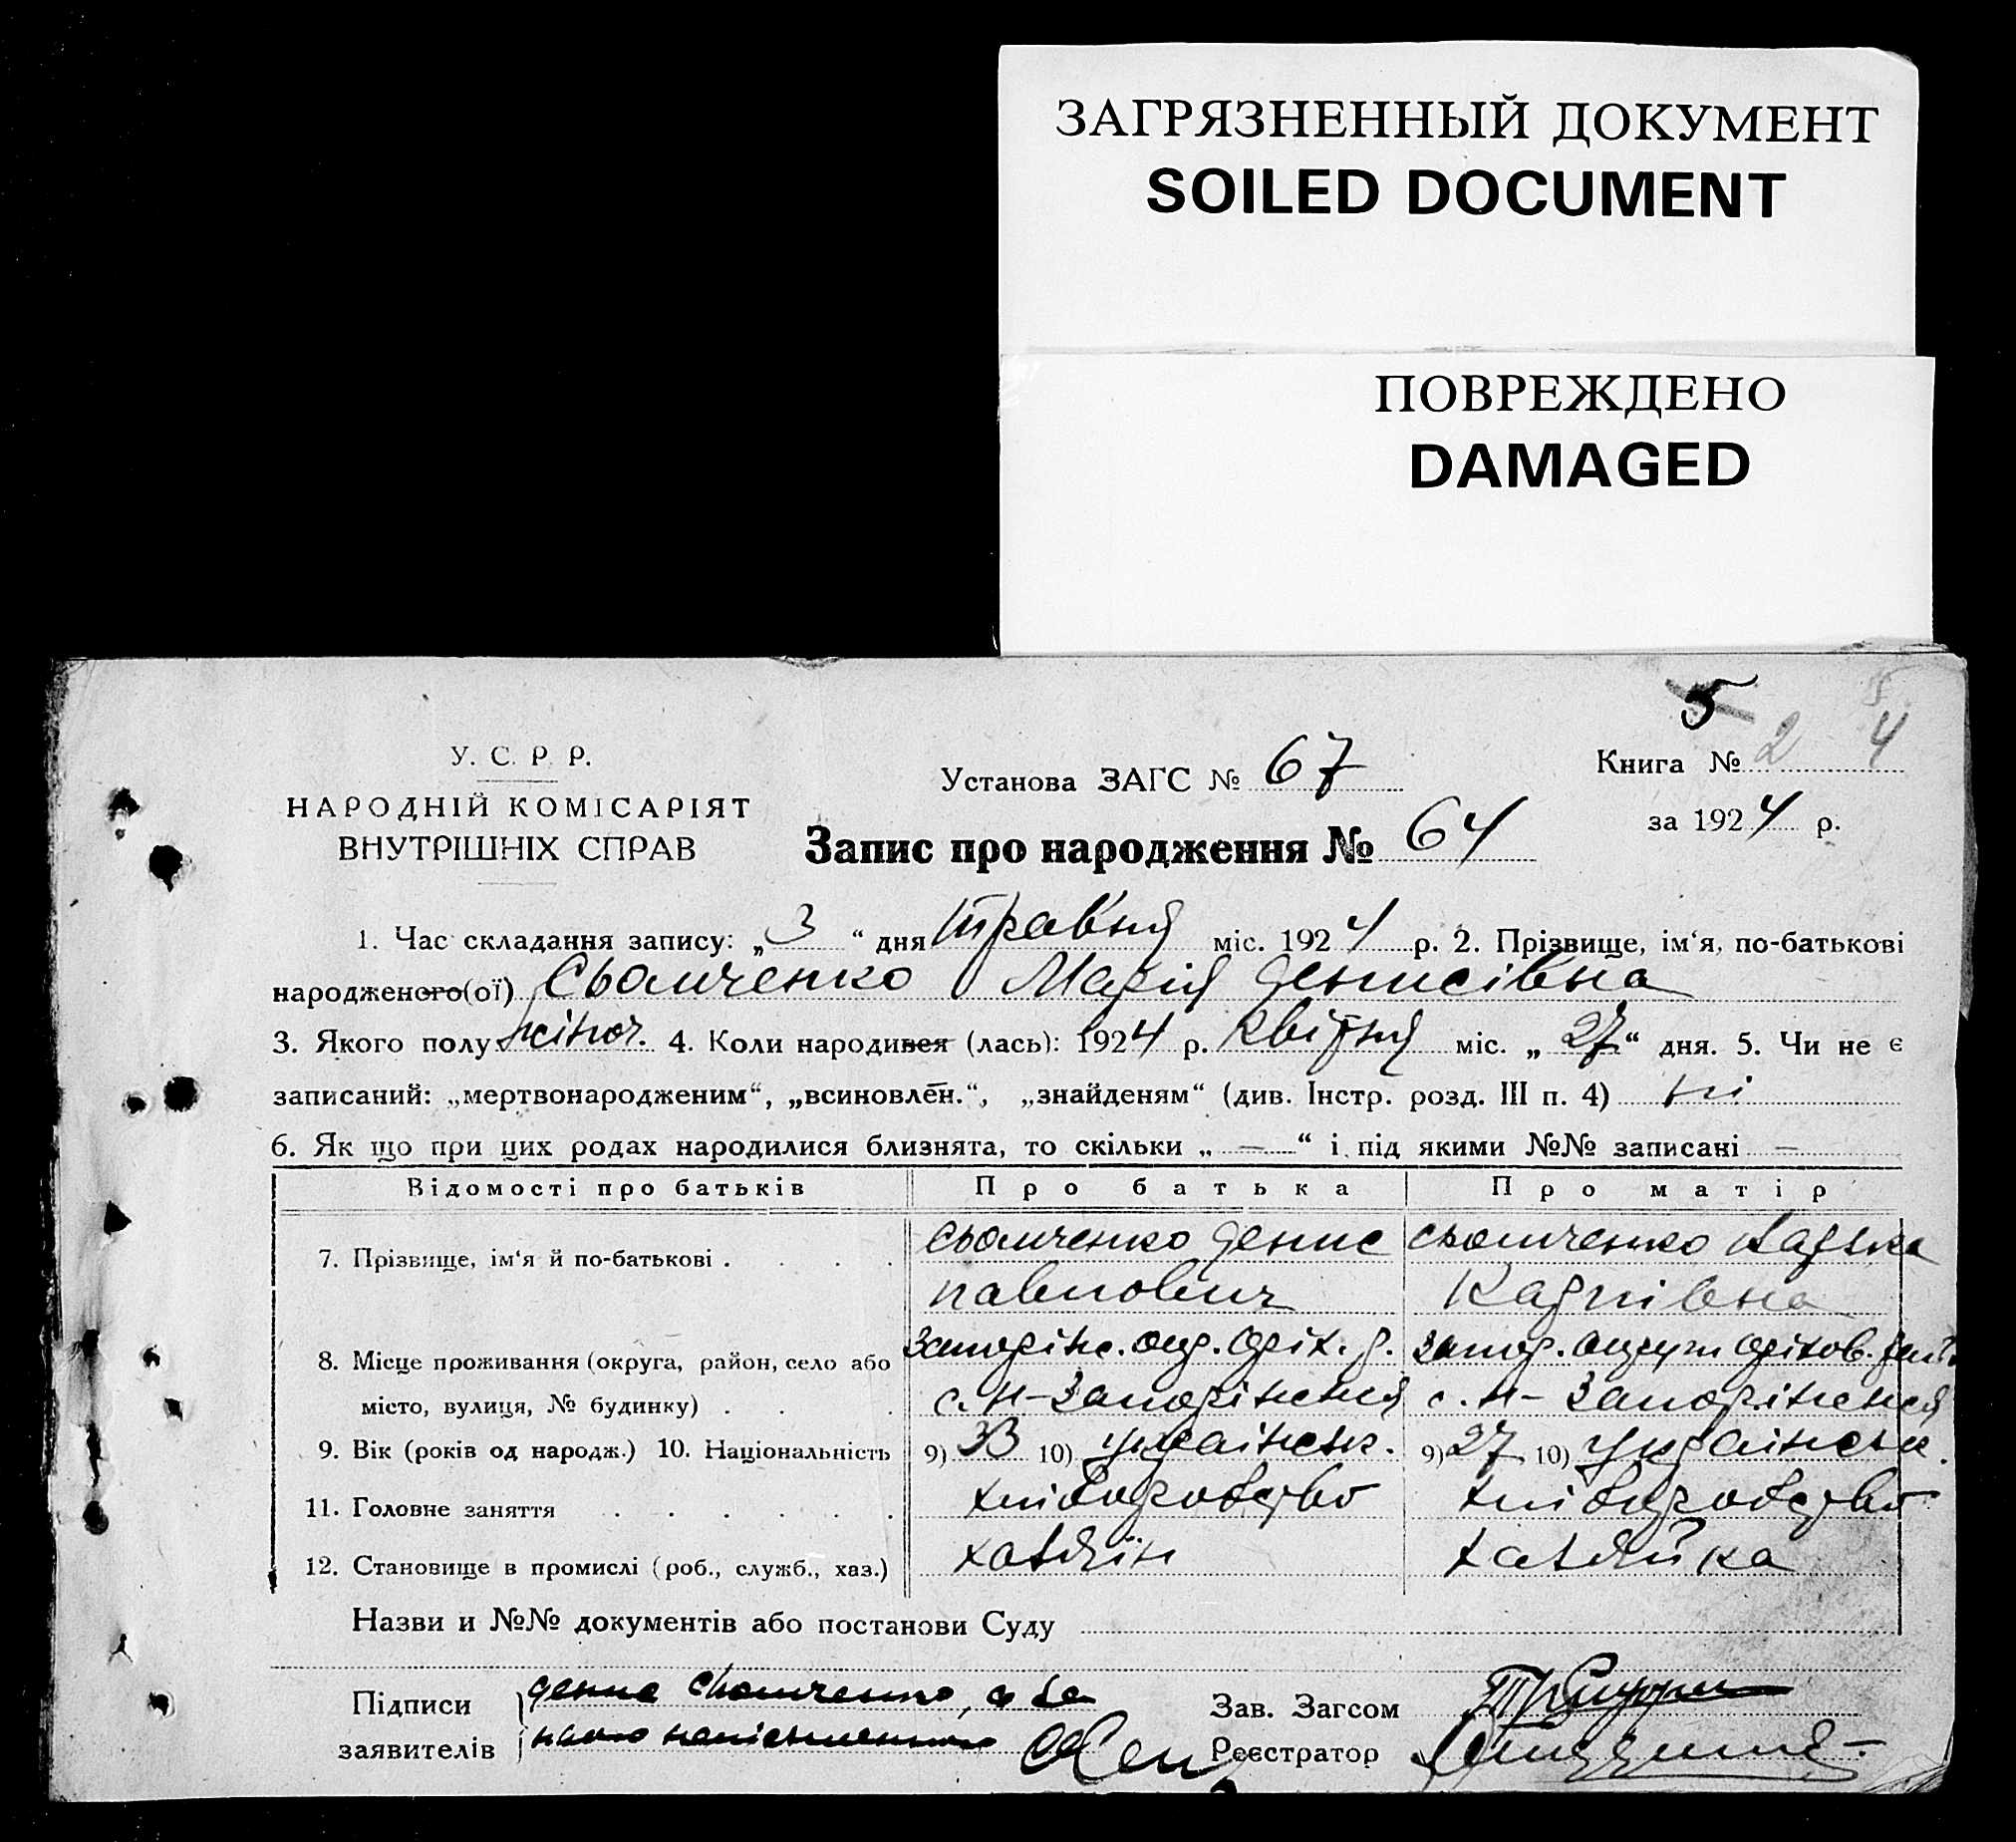 ЗАГРЯЗНЕННЫЙ ДОКУМЕНТ
SOILED DOCUMENT
ПОВРЕЖДЕНО
DAMAGED
5
5
4
У. С. Р. Р.
НАРОДНІЙ КОМІСАРІЯТ
ВНУТРІШНІХ СПРАВ
Установа ЗАГС № 67
Книга № 2
за 1924 р.
Запис про народження № 64
1. Час складання запису: „3“ дня травня міс. 1924 р. 2. Прізвище, ім‘я, по-батькові
народженого(ої) Сьомченко Марія Денисівна
3. Якого полу жіноч. 4. Коли народився (лась): 1924 р. квітня міс. „27“ дня. 5. Чи не є
записаний: „мертвонародженим“, „всиновлен.“, „знайденям“ (див. Інстр. розд. III п. 4) ні
6. Як що при цих родах народилися близнята, то скільки „—“ і під якими №№ записані —
Відомості про батьків Про батька Про матір
7. Прізвище, ім‘я й по-батькові . . . . Сьомченко Денис Павлович
Сьомченко Карпівна
8. Місце проживання (округа, район, село або місто, вулиця, № будинку) . . .
Запоріж. окр. Оріх. р. с. Н-Запоріжжя
Запор. округи Оріхов. с. Н-Запоріжжя
9. Вік (років од народж.) 10. Національність 9) 33 10) українськ. 9) 27 10) українськ.
11. Головне заняття . . . . . . хліборобство хліборобство
12. Становище в промислі (роб., служб., хаз.) хазяїн хазяйка
Назви и №№ документів або постанови Суду
Підписи заявителів Денис Сьомченко, а за
Зав. Загсом
Реєстратор